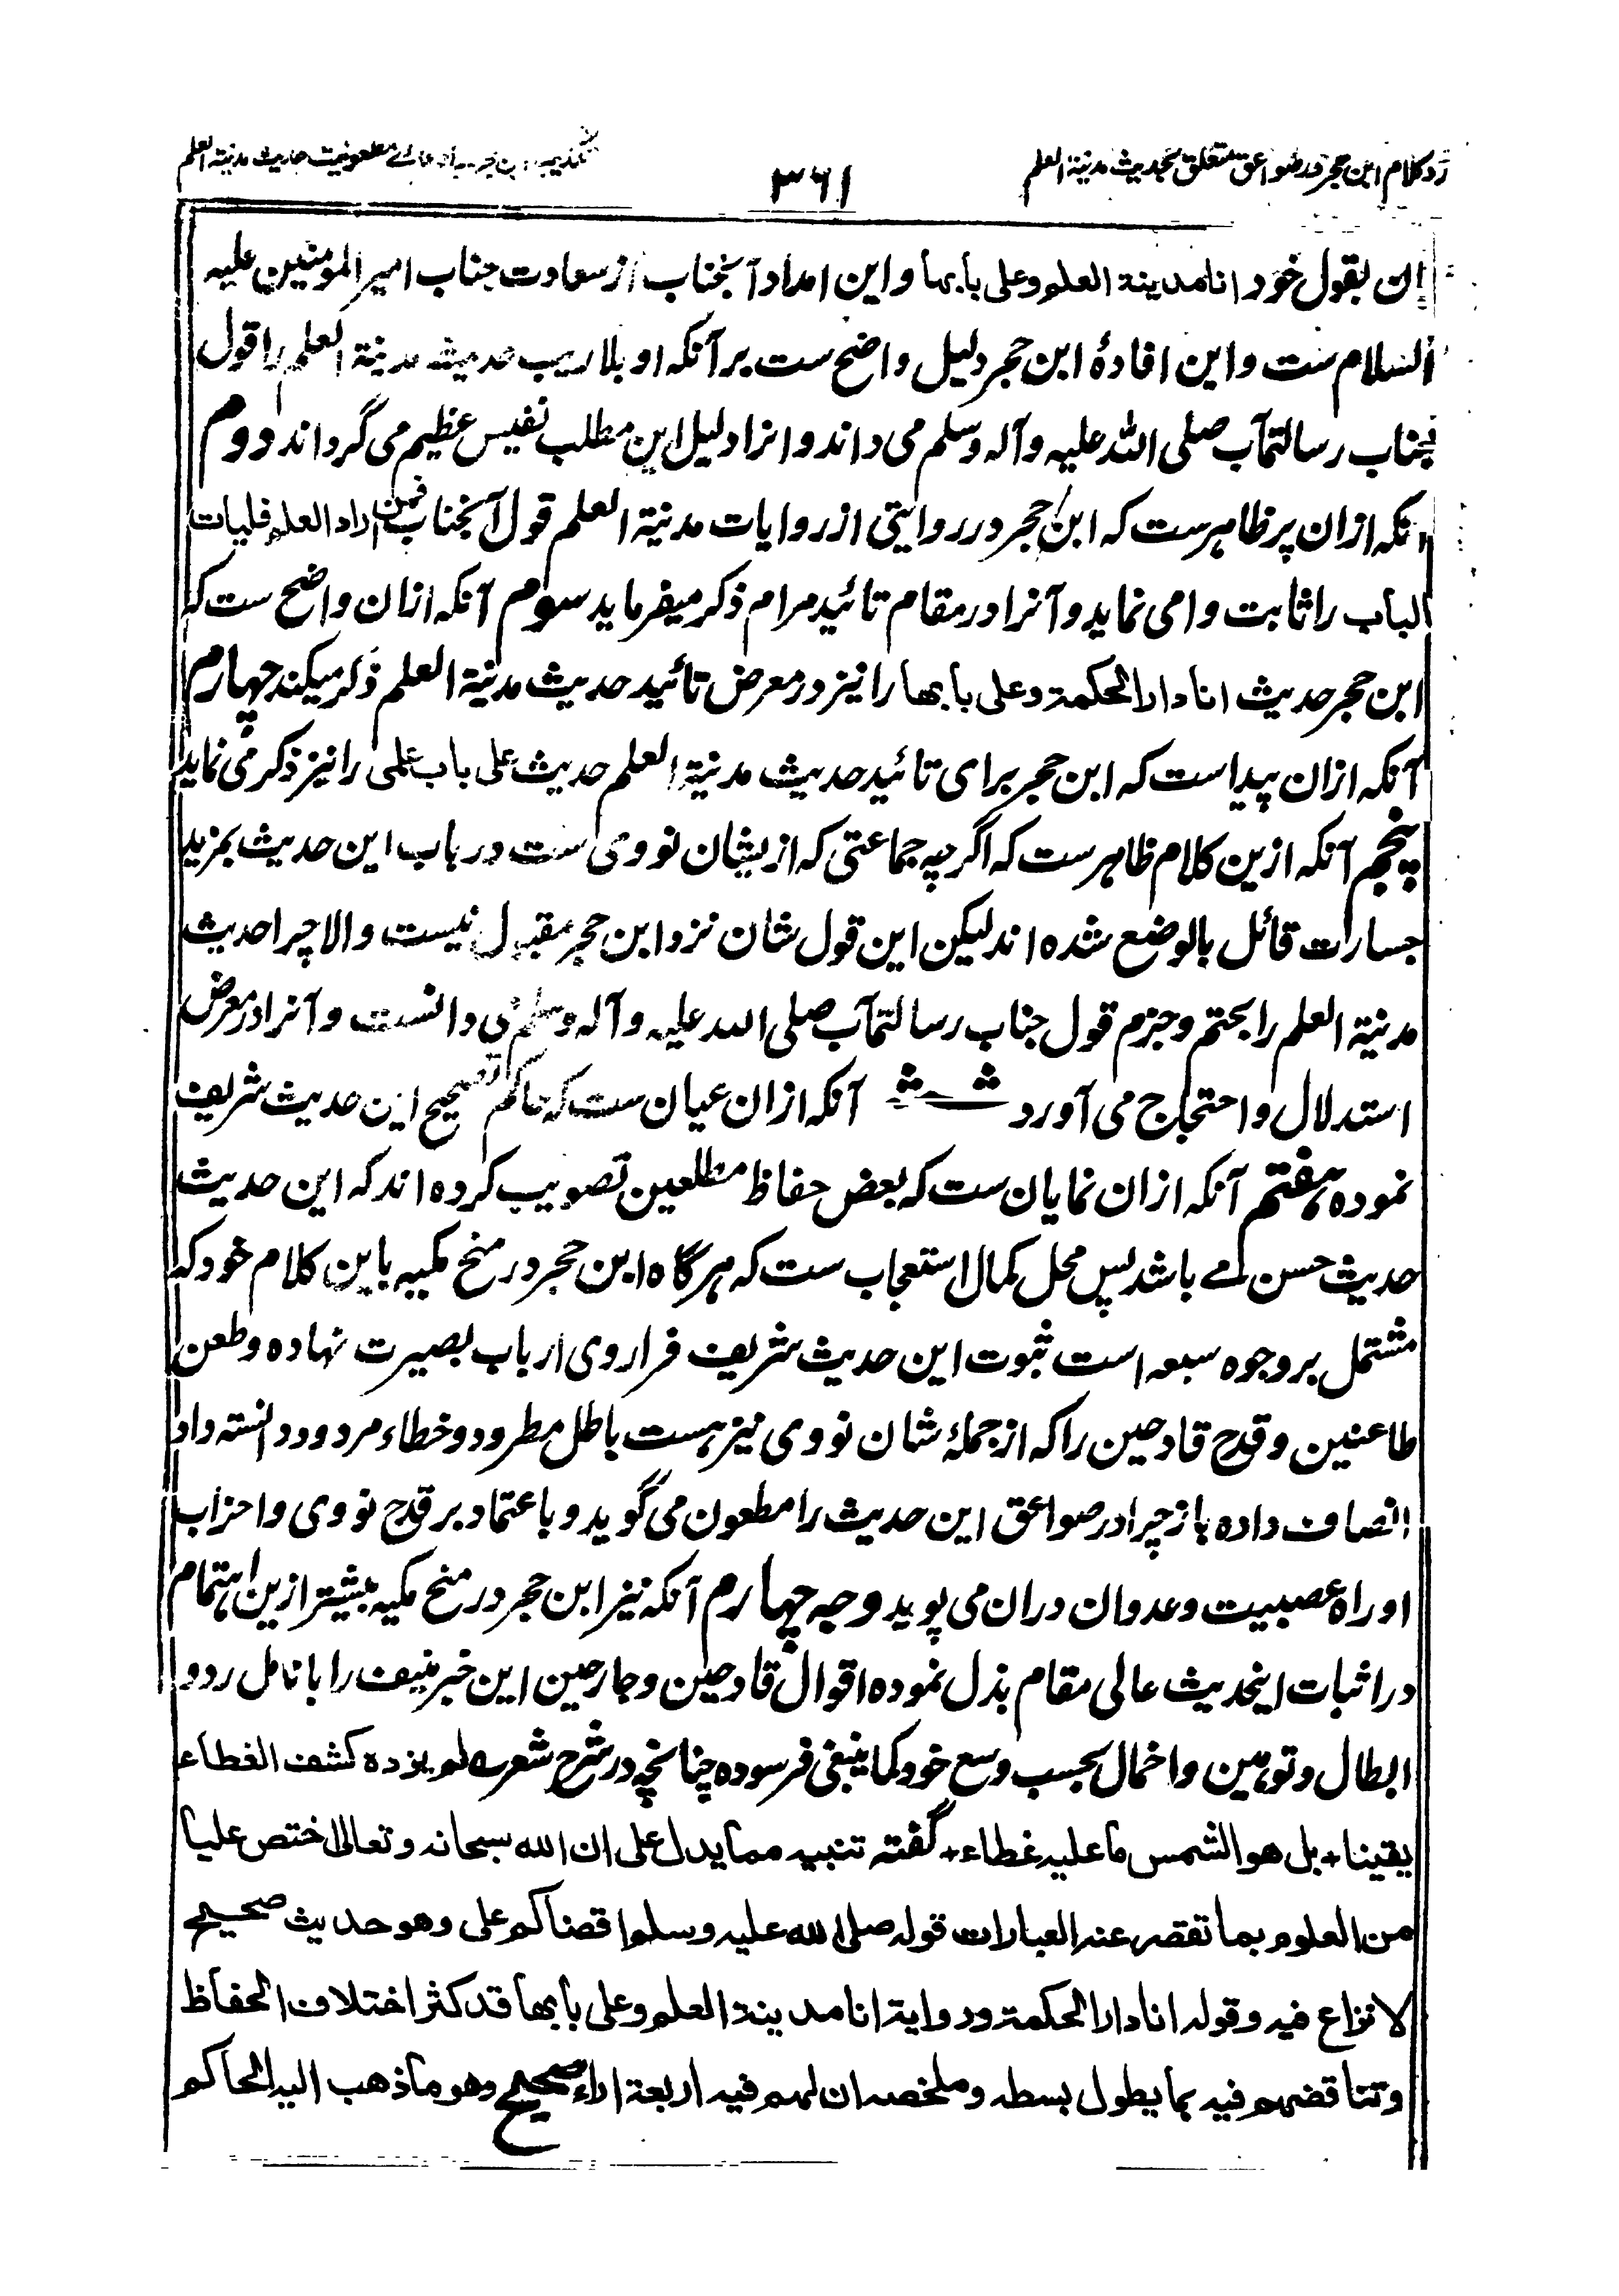 رد کلام ابن حجر در صواعق متعلق بحدیث مدینة العلم
۳۶۱
تکذیب ابن حجر بادعای مطعونیت حدیث مدینة العلم
ان بقول خود انا مدینة العلم وعلی بابها و این امداد آنجناب از سعادت جناب امیر المومنین علیه
السلام ست و این افادهٔ ابن حجر دلیل واضح ست بر آنکه او بلا ریب حدیث مدینة العلم را قول
جناب رسالتمآب صلی الله علیه وآله وسلم می داند و انرا دلیل این مطلب نفیس عظیم می گرداند دوم
آنکه ازان پر ظاهرست که ابن حجر در روایتی از روایات مدینة العلم قول آنجناب فمن اراد العلم فلیات
الباب را ثابت وا می نماید و آنرا در مقام تائید مرام ذکر میفرماید سوم آنکه ازان واضح ست که
ابن حجر حدیث انا دار الحکمة وعلی بابها را نیز در معرض تائید حدیث مدینة العلم ذکر میکند چهارم
آنکه ازان پیداست که ابن حجر برای تائید حدیث مدینة العلم حدیث علی باب علمی را نیز ذکر می نماید
پنجم آنکه ازین کلام ظاهرست که اگرچه جماعتی که ازیشان نووی ست در باب این حدیث بمزید
جسارات قائل بالوضع شده اند لیکن این قول شان نزد ابن حجر مقبول نیست والا چرا حدیث
مدینة العلم را بحتم و جزم قول جناب رسالتمآب صلی الله علیه وآله وسلم می دانست و آنرا در معرض
استدلال و احتجاج می آورد ششم آنکه ازان عیان ست که حاکم تصحیح این حدیث شریف
نموده هفتم آنکه ازان نمایان ست که بعض حفاظ مطلعین تصویب کرده اند که این حدیث
حدیث حسن مے باشد پس محل کمال استعجاب ست که هرگاه ابن حجر در منح مکیه باین کلام خود که
مشتمل بر وجوه سبعه است ثبوت این حدیث شریف فرا روی ارباب بصیرت نهاده و طعن
طاعنین و قدح قادحین را که از جملهٔ شان نووی نیز هست باطل مطرود و خطاء مردود دانسته داد
انصاف داده باز چرا در صواعق این حدیث را مطعون می گوید و باعتماد بر قدح نووی و احزاب
او راه عصبیت و عدوان دران می پوید وجه چهارم آنکه نیز ابن حجر در منح مکیه بیشتر ازین اهتمام
در اثبات اینحدیث عالی مقام بذل نموده اقوال قادحین و جارحین این خبر منیف را بانامل رد و
ابطال و توهین و اخمال بحسب وسع خود کما ینبغی فرسوده چنانچه در شرح شعرے لم یزده کشف الغطاء
یقینا + بل هو الشمس ما علیه غطاء + گفته تنبیه مما یدل علی ان الله سبحانه وتعالی اختص علیا
من العلوم بما تقصر عنه العبارات قوله صلی الله علیه وسلم اقضاکم علی وهو حدیث صحیح
لا نزاع فیه وقوله انا دار الحکمة وروایة انا مدینة العلم وعلی بابها قد کثر اختلاف الحفاظ
وتناقضهم فیه بما یطول بسطه وملخصه ان لهم فیه اربعة اراء صحیح وهو ما ذهب الیه الحاکم